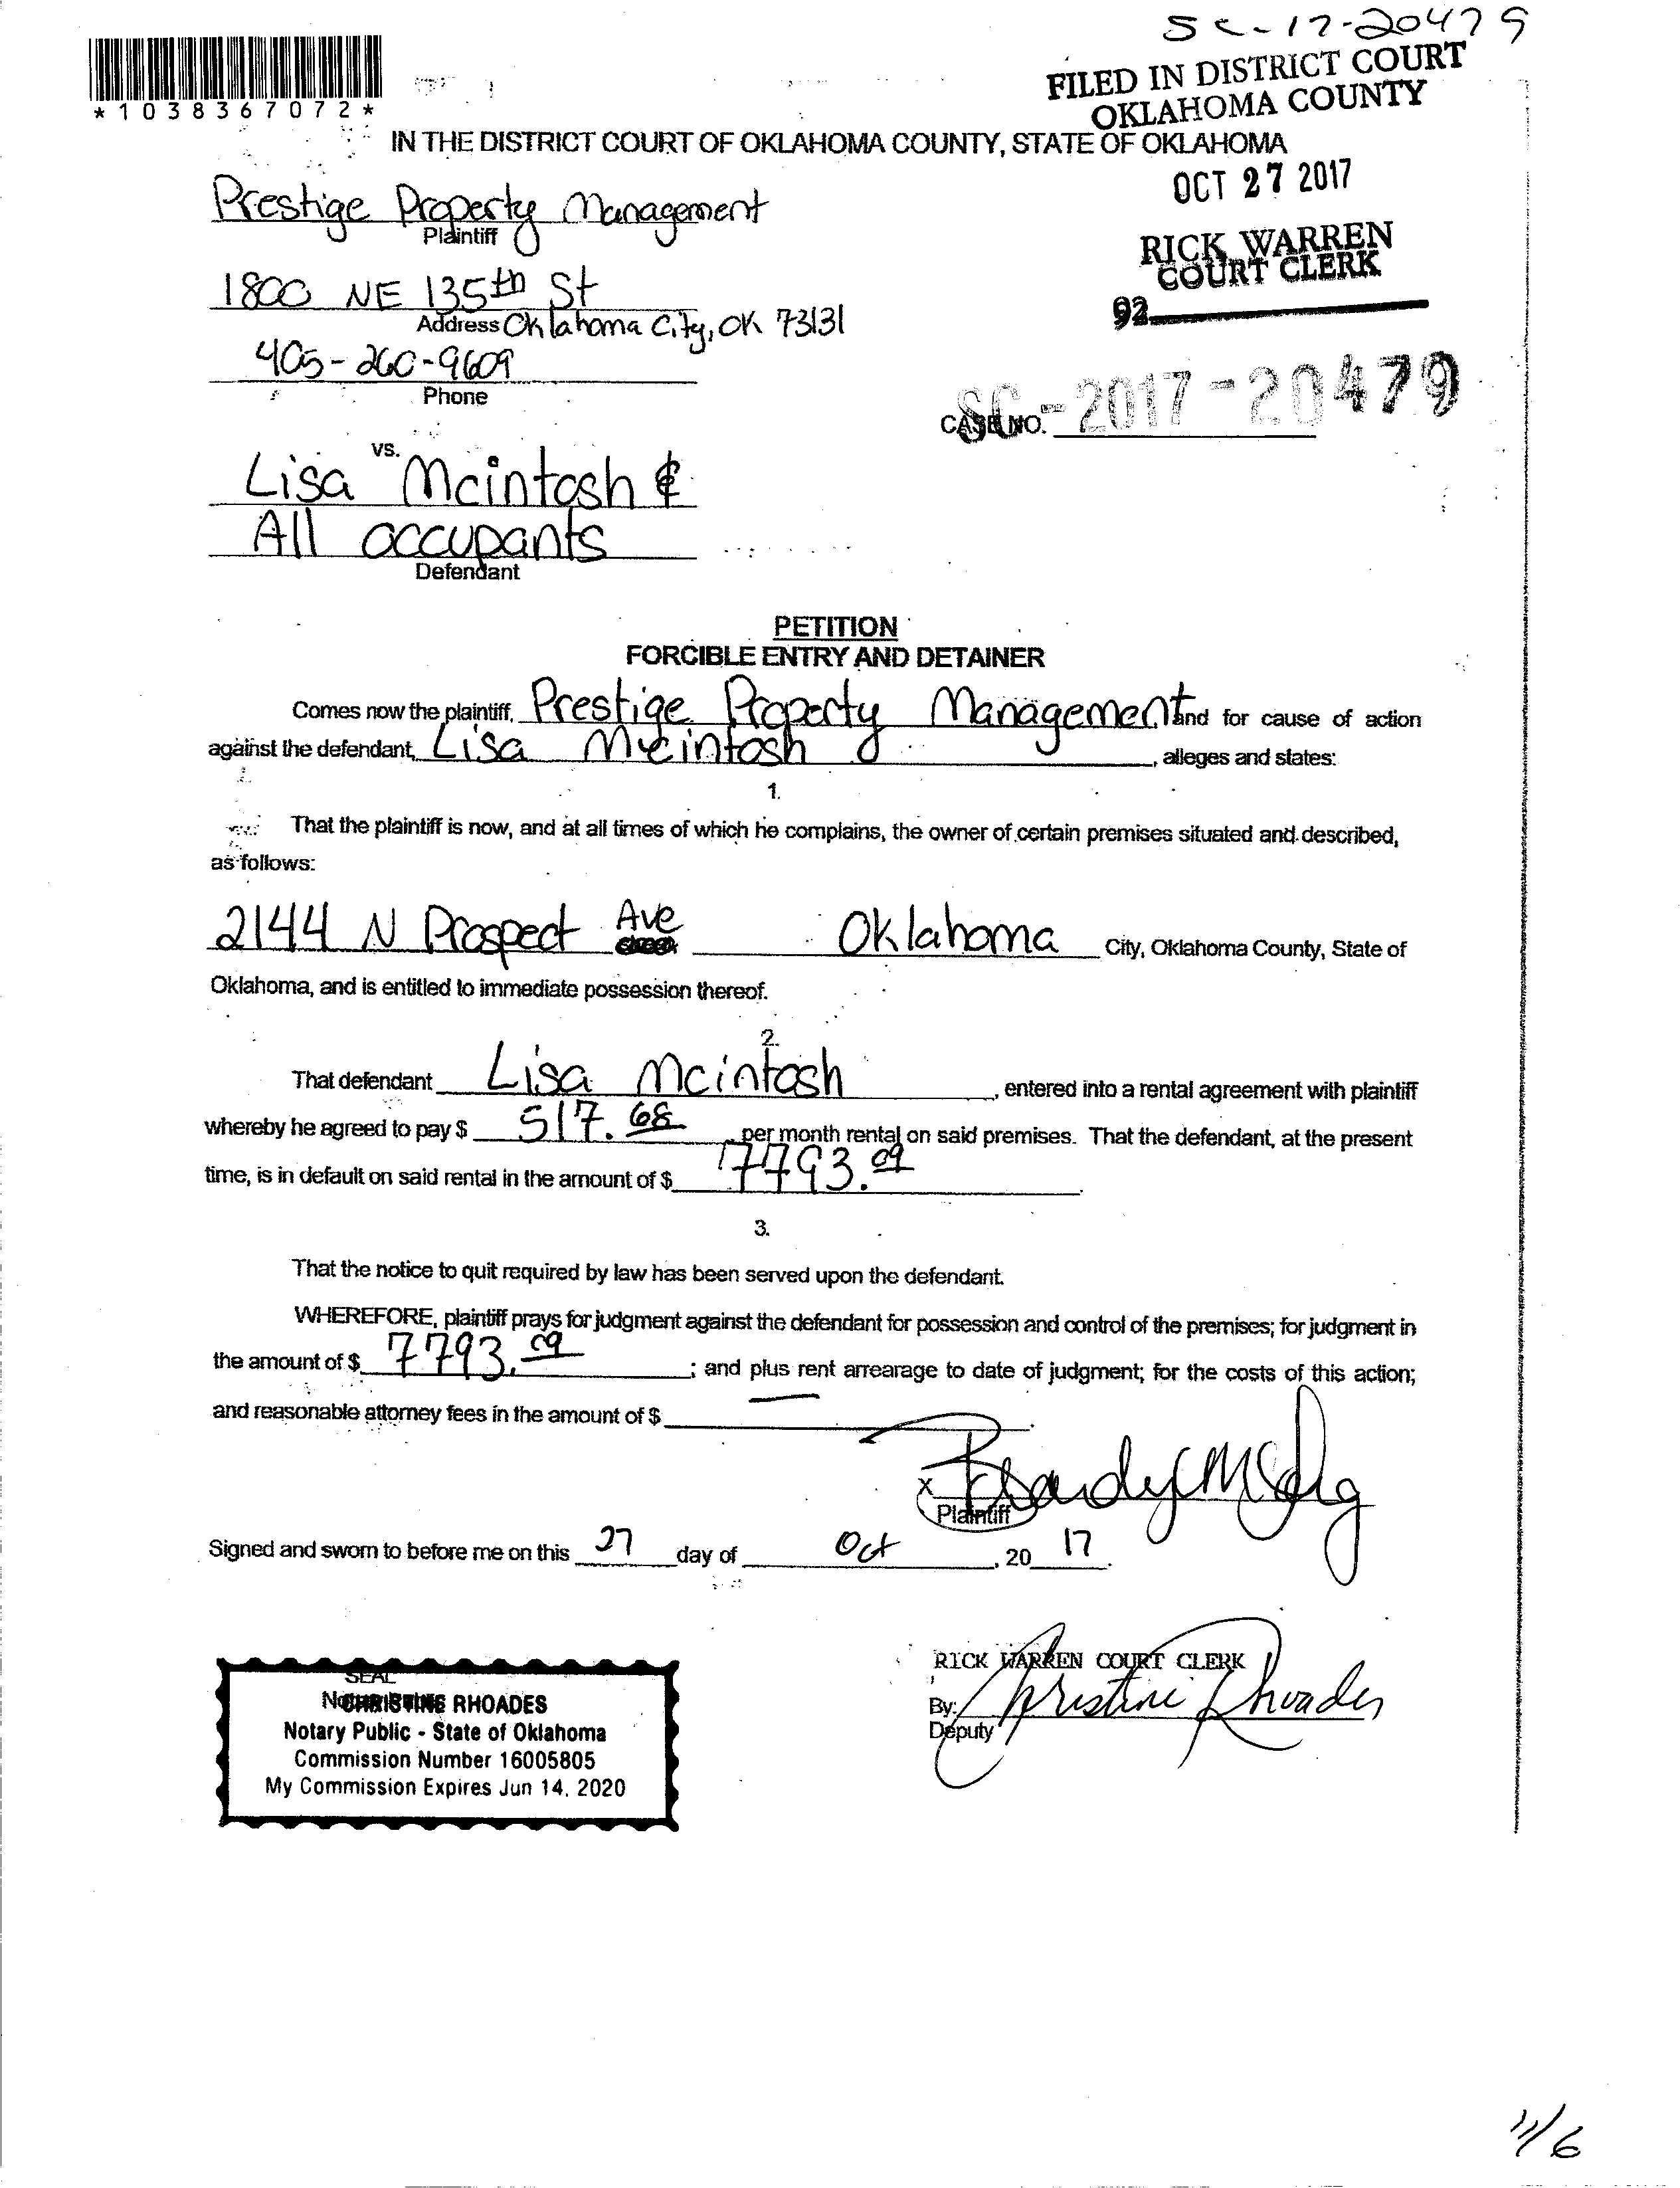 SC-17-20479
*1038367072*
FILED IN DISTRICT COURT
OKLAHOMA COUNTY
IN THE DISTRICT COURT OF OKLAHOMA COUNTY, STATE OF OKLAHOMA
OCT 27 2017
Prestige Property Management
Plaintiff
RICK WARREN
COURT CLERK
1800 NE 135th St
Address Oklahoma City, OK 73131
92
405-260-9609
Phone
SC-2017-20479
CASE NO.
vs.
Lisa Mcintosh &
All occupants
Defendant
PETITION
FORCIBLE ENTRY AND DETAINER
Comes now the plaintiff, Prestige Property Management and for cause of action
against the defendant, Lisa Mcintosh, alleges and states:
1.
That the plaintiff is now, and at all times of which he complains, the owner of certain premises situated and described,
as follows:
2144 N Prospect Ave Oklahoma City, Oklahoma County, State of
Oklahoma, and is entitled to immediate possession thereof.
2.
That defendant Lisa Mcintosh, entered into a rental agreement with plaintiff
whereby he agreed to pay $ 517.68 per month rental on said premises. That the defendant, at the present
time, is in default on said rental in the amount of $ 7793.09.
3.
That the notice to quit required by law has been served upon the defendant.
WHEREFORE, plaintiff prays for judgment against the defendant for possession and control of the premises; for judgment in
the amount of $ 7793.09; and plus rent arrearage to date of judgment; for the costs of this action;
and reasonable attorney fees in the amount of $ —.
x
Plaintiff
Signed and sworn to before me on this 27 day of Oct, 20 17.
RICK WARREN COURT CLERK
By: Christine Rhoades
Deputy
SEAL
CHRISTINE RHOADES
Notary Public - State of Oklahoma
Commission Number 16005805
My Commission Expires Jun 14, 2020
11/6